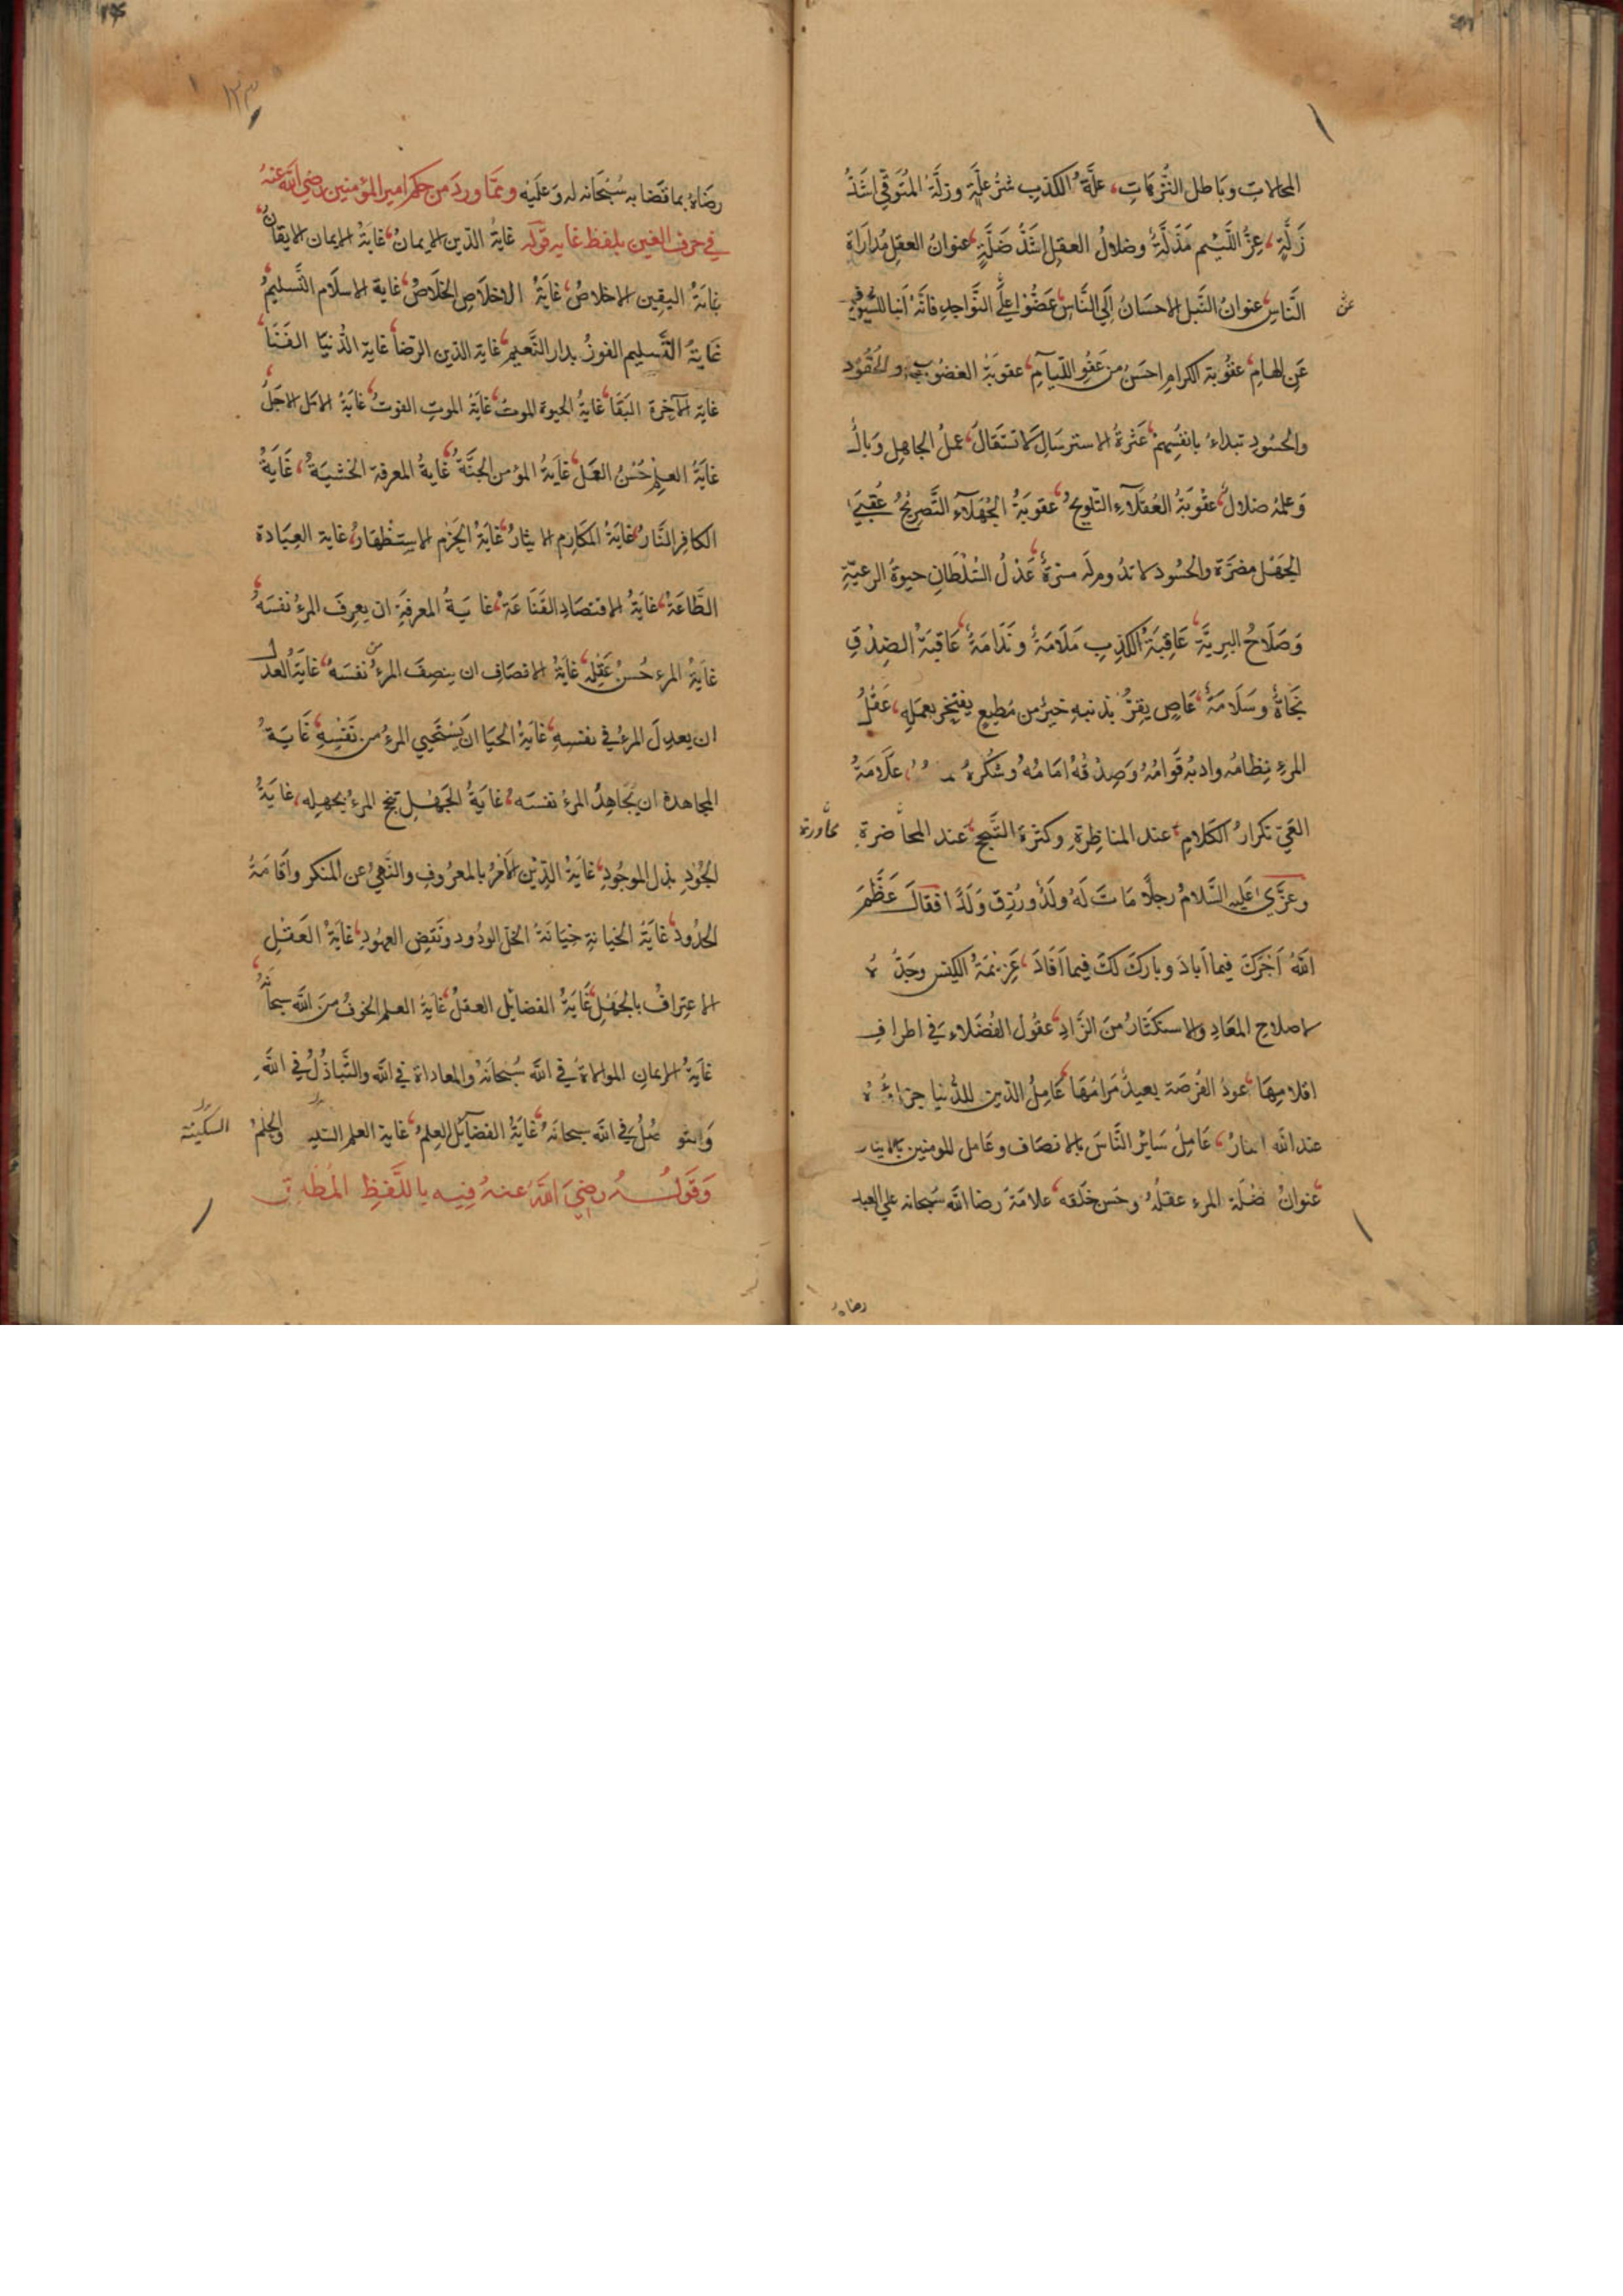 المحالات وباطل الترهات علة الكذب شر علة وزلة المتوقي اشد
زلة عز اللئيم مذلة وضلال العقل اشد ضلة عنوان العقل مداراة
الناس عنوان النبل الاحسان الي الناس عضوا علي النواجذ فانه انبا للسيوف
عن
عن الهام عقوبة الكرام احسن من عفو اللئآم عقوبة الغضوب والحقود
والحسود تبداء بانفسهم عثرة الاسترسال لا تستقال عمل الجاهل وبال
وعلمه ضلال عقوبة العقلآء التلويح عقوبة الجهلآء التصريح عقبي
الجهل مضرة والحسود لا تدوم له مسرة عدل السلطان حيوة الرعية
وصلاح البرية عاقبة الكذب ملامة وندامة عاقبة الصدق
نجاة وسلامة عاص يقر بذنبه خير من مطيع يفتخر بعمله عقل
المرء نظامه وادبه قوامه وصدقه امامه وشكره علامة
العي تكرار الكلام عند المناظرة وكثرة التبجح عند المحاضرة
محاورة
وعزي عليه السلام رجلا مات له ولد ورزق ولدا فقال عظم
الله اجرك فيما اباد وبارك لك فيما افاد عزيمة الكيس وجده
لاصلاح المعاد والاستكثار من الزاد عقول الفضلاء في اطراف
اقلامها عود الفرصة يعيد مرامها عامل الدين للدنيا جزاؤه
عند الله النار عامل سائر الناس بالانصاف وعامل للمومنين بالايثار
عنوان فضلة المرء عقله وحسن خلقه علامة رضا الله سبحانه علي العبد
رضاه
رضاه بما قضا به سبحانه له وعليه ومما ورد من حكم امير المؤمنين رضي الله عنه
في حرف الغين بلفظ غايه قوله غاية الدين الايمان غاية الايمان الايقان
غاية اليقين الاخلاص غاية الاخلاص الخلاص غاية الاسلام التسليم
غاية التسليم الفوز بدار النعيم غاية الدين الرضا غاية الدنيا الفنا
غاية الآخرة البقا غاية الحيوة الموت غاية الموت الفوت غاية الامل الاجل
غاية العلم حسن العمل غاية المؤمن الجنة غاية المعرفة الخشية غاية
الكافر النار غاية المكارم الايثار غاية الحزم الاستظهار غاية العبادة
الطاعة غاية الاقتصاد القناعة غاية المعرفة ان يعرف المرء نفسه
غاية المرء حسن عقله غاية الانصاف ان ينصف المرء نفسه غاية العدل
من
ان يعدل المرء في نفسه غاية الحيا ان يستحيي المرء من نفسه غاية
المجاهدة ان يجاهد المرء نفسه غاية الجهل تبجح المرء بجهله غاية
الجود بذل الموجود غاية الدين الامر بالمعروف والنهي عن المنكر واقامة
الحدود غاية الخيانة خيانة الخل الودود ونقض العهود غاية العقل
الاعتراف بالجهل غاية الفضائل العقل غاية العلم الخوف من الله سبحانه
غاية الايمان الموالاة في الله سبحانه والمعاداة في الله والتباذل في الله
والتواصل في الله سبحانه غاية الفضآئل العلم غاية العلم والحلم
السكينة
وقوله رضي الله عنه فيه باللفظ المطلق